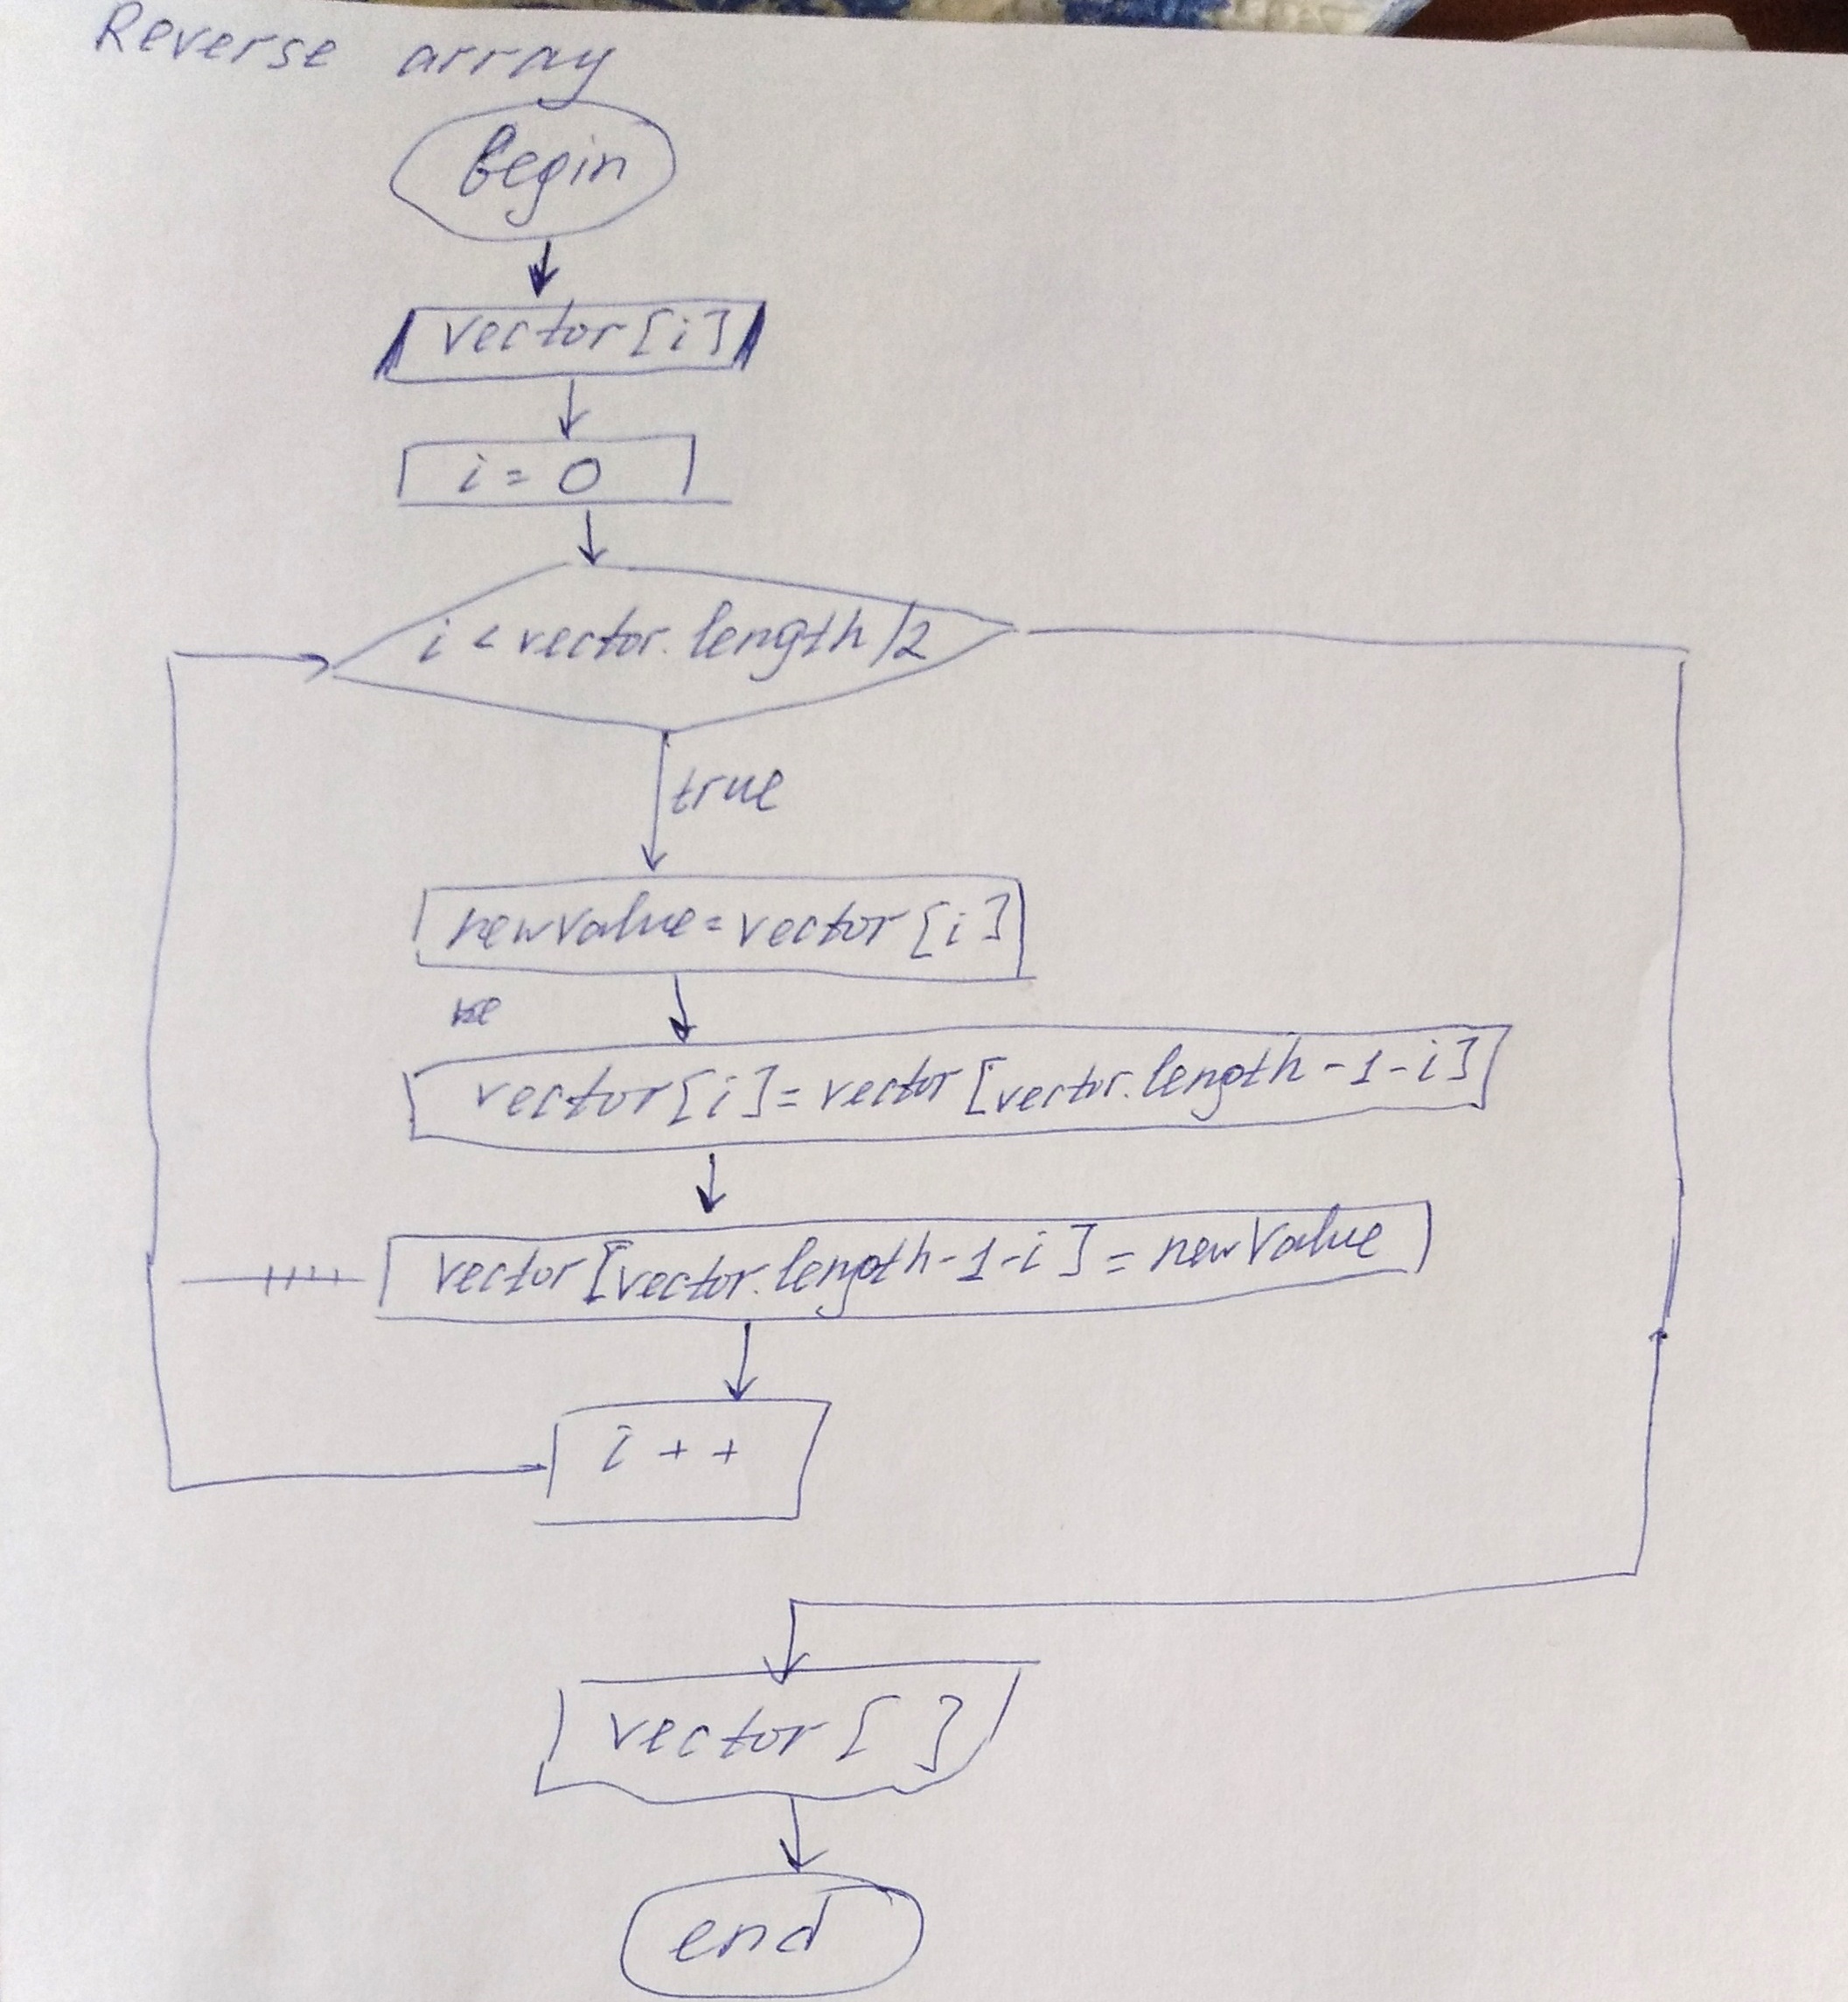 Reverse array
begin
vector[i]
i = 0
i < vector.length/2
true
newValue = vector[i]
vector[i] = vector[vector.length-1-i]
vector[vector.length-1-i] = newValue
i++
vector[ ]
end